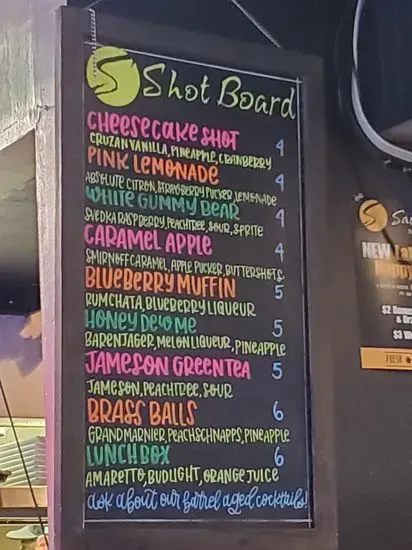 S Shot Board
CHEESECAKE SHOT 4
CRUZAN VANILLA, PINEAPPLE, CRANBERRY
PINK LEMONADE 4
ABSOLUTE CITRON, STRAWBERRY PUCKER, LEMONADE
WHITE GUMMY BEAR 4
SVEDKA RASPBERRY, PEACHTREE, SOUR, SPRITE
CARAMEL APPLE 4
SMIRNOFF CARAMEL, APPLE PUCKER, BUTTERSHOTS
BLUEBERRY MUFFIN 5
RUMCHATA, BLUEBERRY LIQUEUR
HONEY DEW ME 5
BARENJAGER, MELON LIQUEUR, PINEAPPLE
JAMESON GREEN TEA 5
JAMESON, PEACHTREE, SOUR
BRASS BALLS 6
GRAND MARNIER, PEACH SCHNAPPS, PINEAPPLE
LUNCH BOX 6
AMARETTO, BUDLIGHT, ORANGE JUICE
ask about our barrel aged cocktails!
S
NEW
$2
$3
FRESH